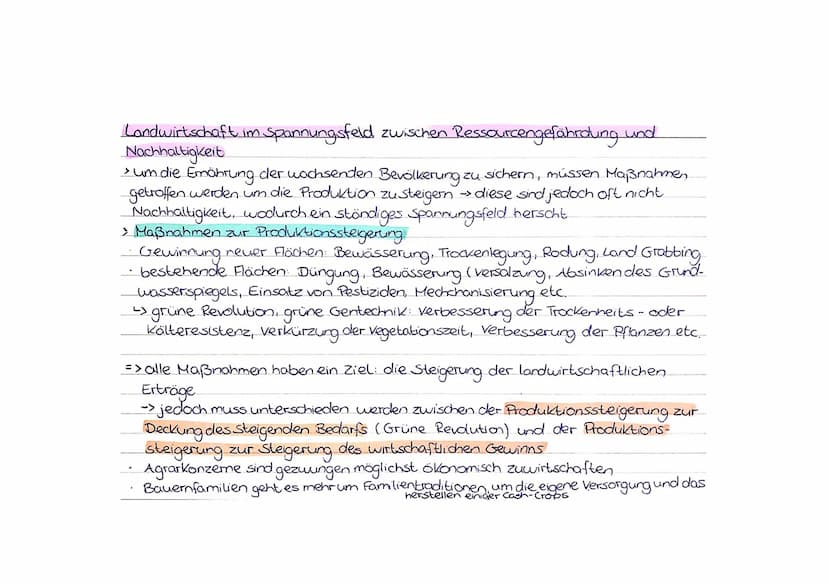 Landwirtschaft im Spannungsfeld zwischen Ressourcengefährdung und
Nachhaltigkeit
> um die Ernährung der wachsenden Bevölkerung zu sichern, müssen Maßnahmen
getroffen werden um die Produktion zu steigern → diese sind jedoch oft nicht
Nachhaltigkeit, wodurch ein ständiges Spannungsfeld herscht
> Maßnahmen zur Produktionssteigerung:
· Gewinnung neuer Flächen: Bewässerung, Trockenlegung, Rodung, Land Grabbing
· bestehende Flächen: Düngung, Bewässerung (Versalzung, Absinken des Grund-
wasserspiegels, Einsatz von Pestiziden, Mechchanisierung etc.
↳ grüne Revolution, grüne Gentechnik: Verbesserung der Trockenheits- oder
Kälteresistenz, Verkürzung der Vegetationszeit, Verbesserung der Pflanzen etc.
=> alle Maßnahmen haben ein Ziel: die Steigerung der landwirtschaftlichen
Erträge
-> jedoch muss unterschieden werden zwischen der Produktionssteigerung zur
Deckung des steigenden Bedarfs (Grüne Revolution) und der Produktions-
steigerung zur Steigerung des wirtschaftlichen Gewinns
· Agrarkonzerne sind gezwungen möglichst ökonomisch zuwirtschaften
· Bauernfamilien geht es mehr um Familientraditionen, um die eigene Versorgung und das
herstellen einder Cash-Crobs